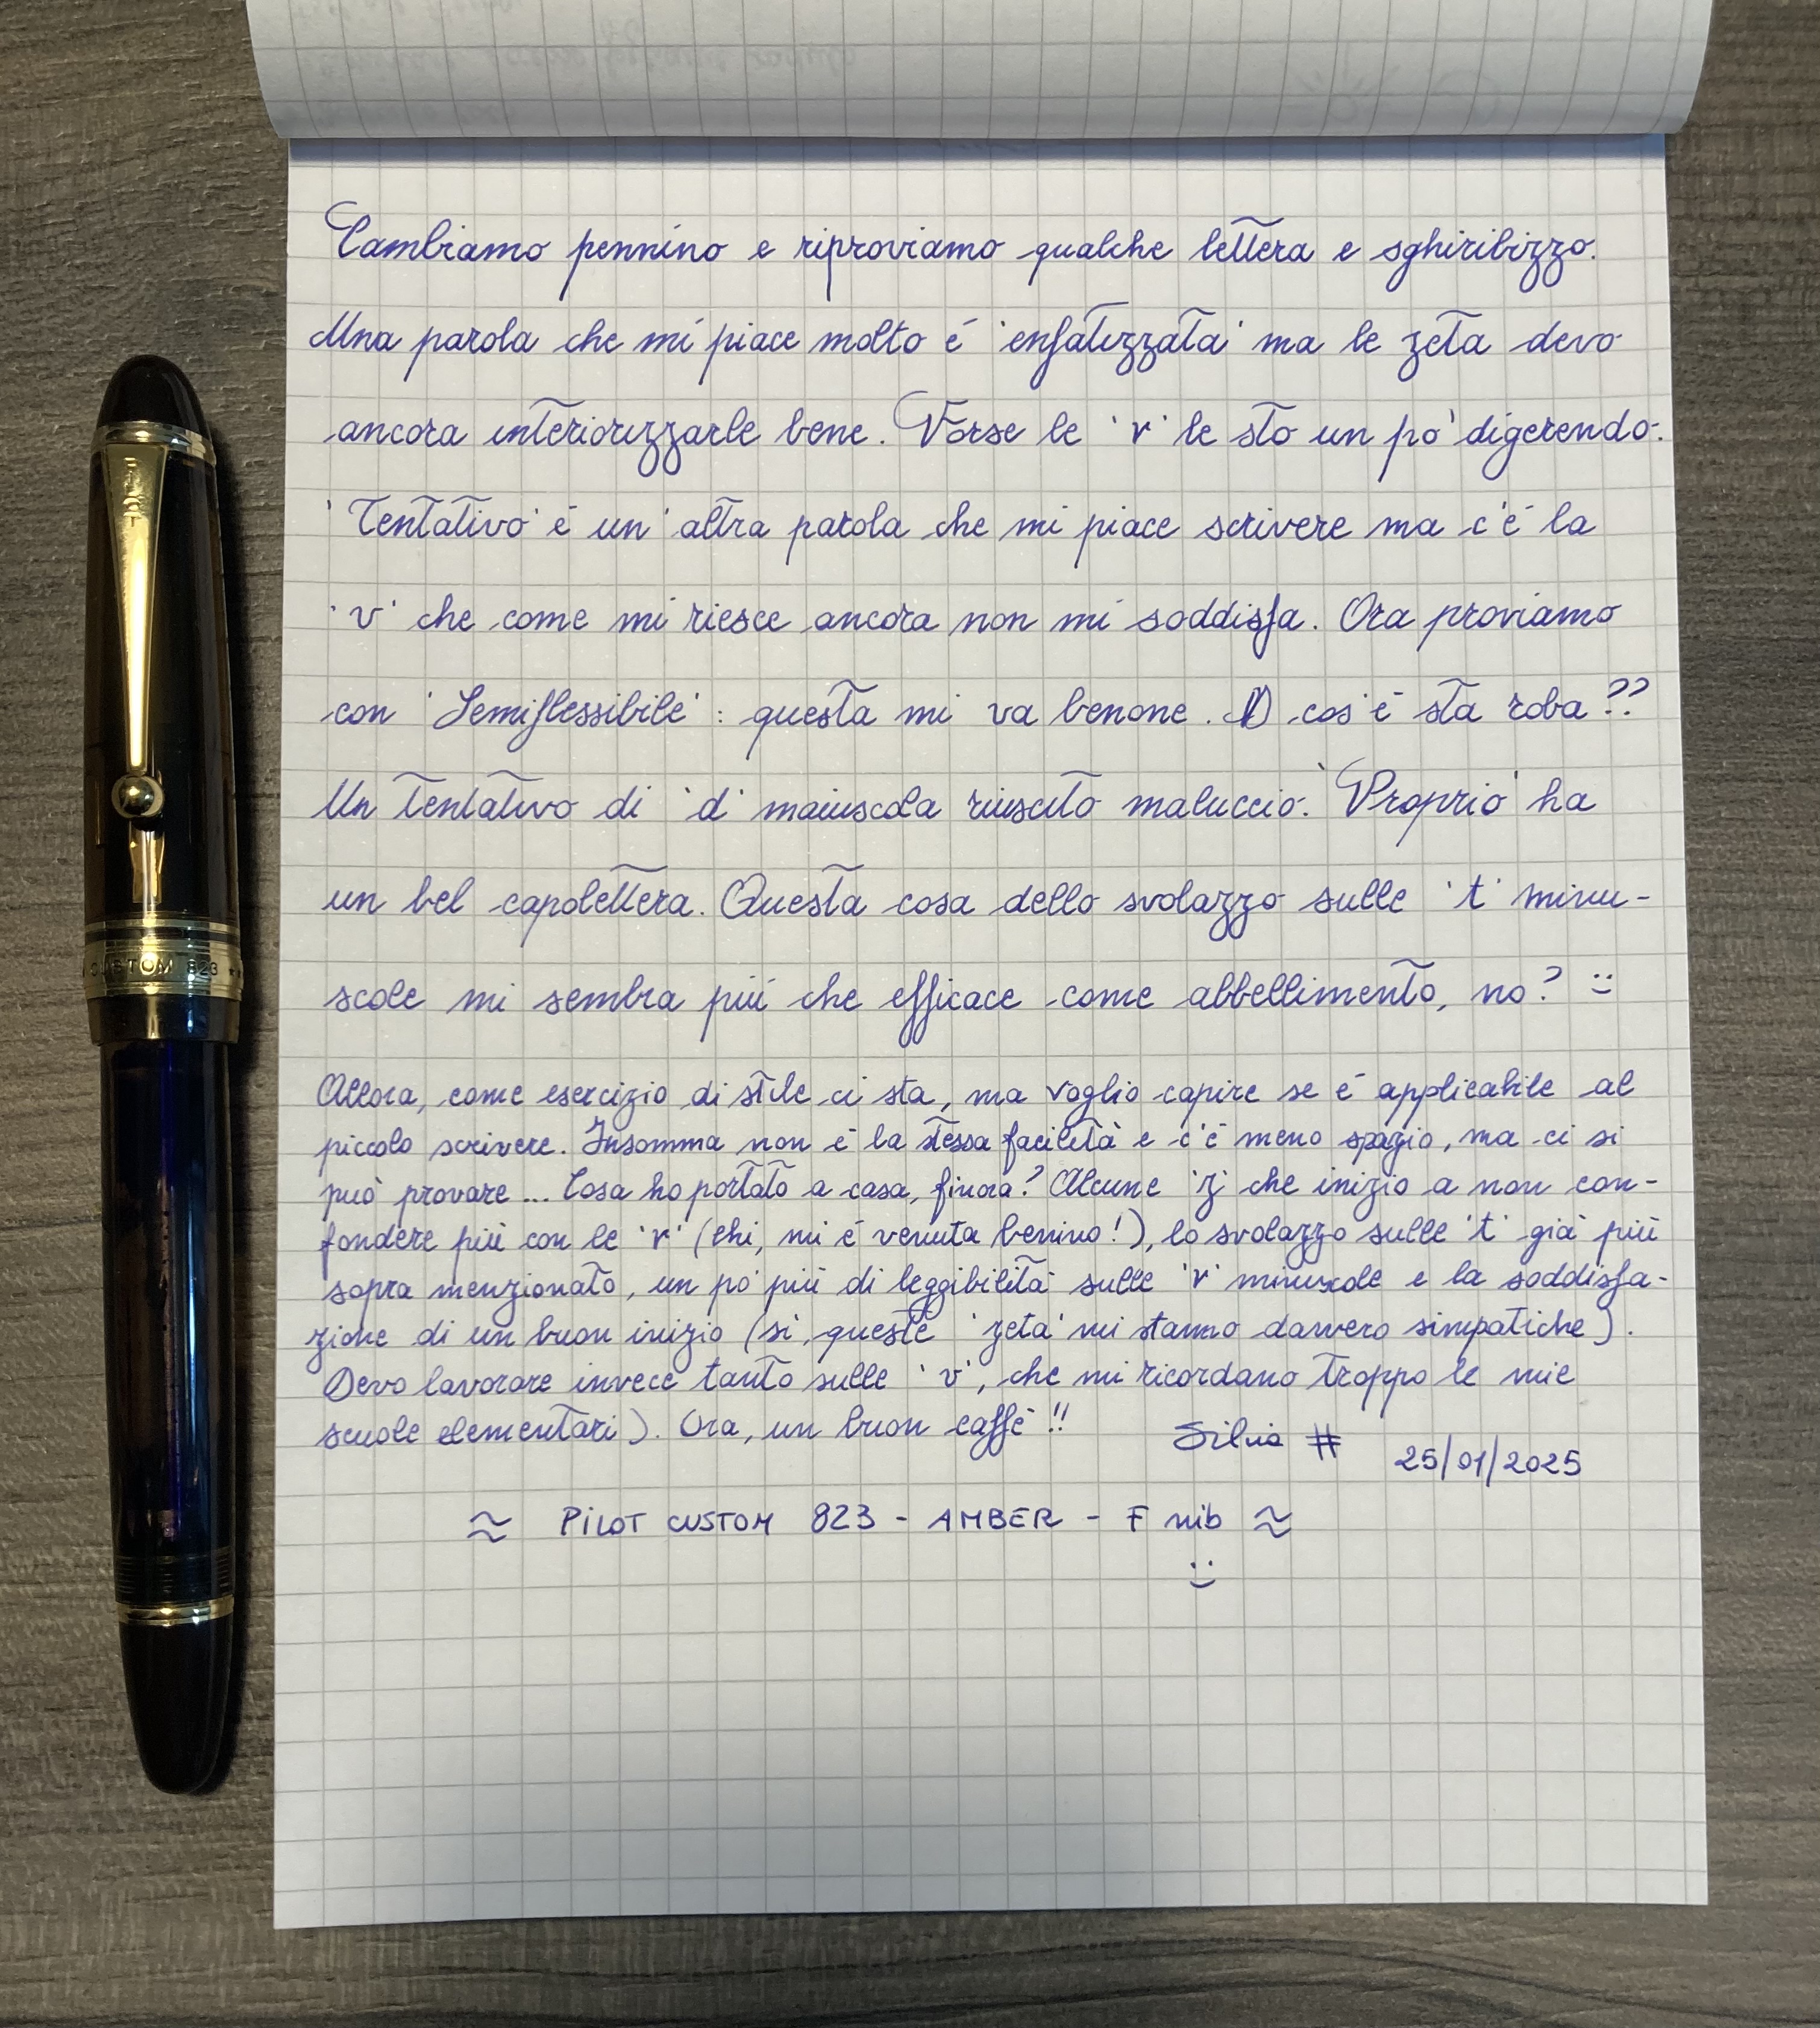 Cambiamo pennino e riproviamo qualche lettera e sghiribizzo.
Una parola che mi piace molto è 'enfatizzata' ma le zeta devo
ancora interiorizzarle bene. Forse le 'r' le sto un po' digerendo.
'Tentativo' è un'altra parola che mi piace scrivere ma c'è la
'v' che come mi riesce ancora non mi soddisfa. Ora proviamo
con 'Semiflessibile': questa mi va benone. D cos'è sta roba??
Un tentativo di 'd' maiuscola riuscito maluccio. 'Proprio' ha
un bel capolettera. Questa cosa dello svolazzo sulle 't' minu-
scole mi sembra più che efficace come abbellimento, no? :)
Allora, come esercizio di stile ci sta, ma voglio capire se è applicabile al
piccolo scrivere. Insomma non è la stessa facilità e c'è meno spazio, ma ci si
può provare... Cosa ho portato a casa, finora? Alcune 'z' che inizio a non con-
fondere più con le 'r' (ehi, mi è venuta benino!), lo svolazzo sulle 't' già più
sopra menzionato, un po' più di leggibilità sulle 'r' minuscole e la soddisfa-
zione di un buon inizio (sì, queste 'zeta' mi stanno davvero simpatiche).
Devo lavorare invece tanto sulle 'v', che mi ricordano troppo le mie
scuole elementari). Ora, un buon caffè!!
Silvia #
25/01/2025
≈ PILOT CUSTOM 823 - AMBER - F nib ≈
:)
CUSTOM 823